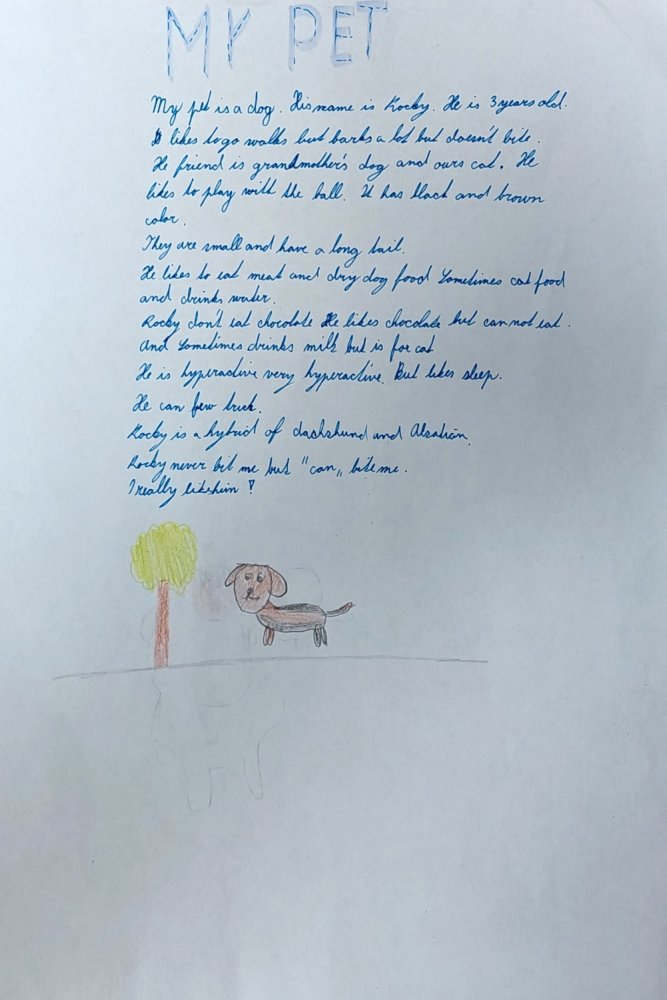 MY PET
My pet is a dog. His name is Rocky. He is 3 years old.
It likes to go walks but barks a lot but doesn't bite.
He friend is grandmother's dog and ours cat. He
likes to play with the ball. It has black and brown
color.
They are small and have a long tail.
He likes to eat meat and dry dog food Sometimes cat food
and drinks water.
Rocky don't eat chocolate He likes chocolate but can not eat.
And Sometimes drinks milk but is for cat
He is hyperactive very hyperactive. But likes sleep.
He can few trick.
Rocky is a hybrid of dachshund and Alsatian.
Rocky never bit me but "can„ bite me.
I really like him!